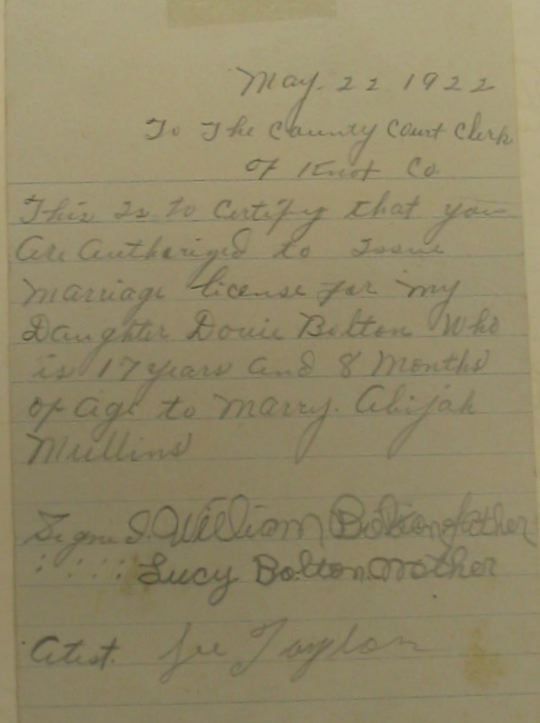 May. 22 1922
To The County Court Clerk
of Knot Co.
This Is to Certify that you
Are Authorized to Issue
Marriage license for my
Daughter Dovie Bolton Who
is 17 years and 8 Months
of age to Marry. Abijah
Mullins
Signed. William Bolton father
: : : : Lucy Bolton. Mother
Atest. Joe Taylor